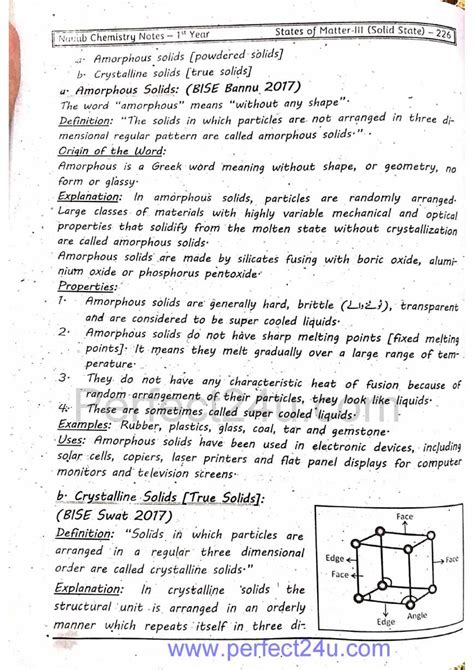 Nawab Chemistry Notes – 1st Year States of Matter-III (Solid State) – 226
a. Amorphous solids [powdered solids]
b. Crystalline solids [true solids]
a. Amorphous Solids: (BISE Bannu 2017)
The word "amorphous" means "without any shape".
Definition: "The solids in which particles are not arranged in three di-
mensional regular pattern are called amorphous solids."
Origin of the Word:
Amorphous is a Greek word meaning without shape, or geometry, no
form or glassy.
Explanation: In amorphous solids, particles are randomly arranged.
Large classes of materials with highly variable mechanical and optical
properties that solidify from the molten state without crystallization
are called amorphous solids.
Amorphous solids are made by silicates fusing with boric oxide, alumi-
nium oxide or phosphorus pentoxide.
Properties:
1. Amorphous solids are generally hard, brittle ( ), transparent
and are considered to be super cooled liquids.
2. Amorphous solids do not have sharp melting points [fixed melting
points]. It means they melt gradually over a large range of tem-
perature.
3. They do not have any characteristic heat of fusion because of
random arrangement of their particles, they look like liquids.
4. These are sometimes called super cooled liquids.
Perfect4u.com
Examples: Rubber, plastics, glass, coal, tar and gemstone.
Uses: Amorphous solids have been used in electronic devices, including
solar cells, copiers, laser printers and flat panel displays for computer
monitors and television screens.
b. Crystalline Solids [True Solids]:
(BISE Swat 2017)
Definition: "Solids in which particles are
arranged in a regular three dimensional
order are called crystalline solids."
Explanation: In crystalline solids the
structural unit is arranged in an orderly
manner which repeats itself in three di-
Face
Edge
Face
Face
Edge
Angle
www.perfect4u.com